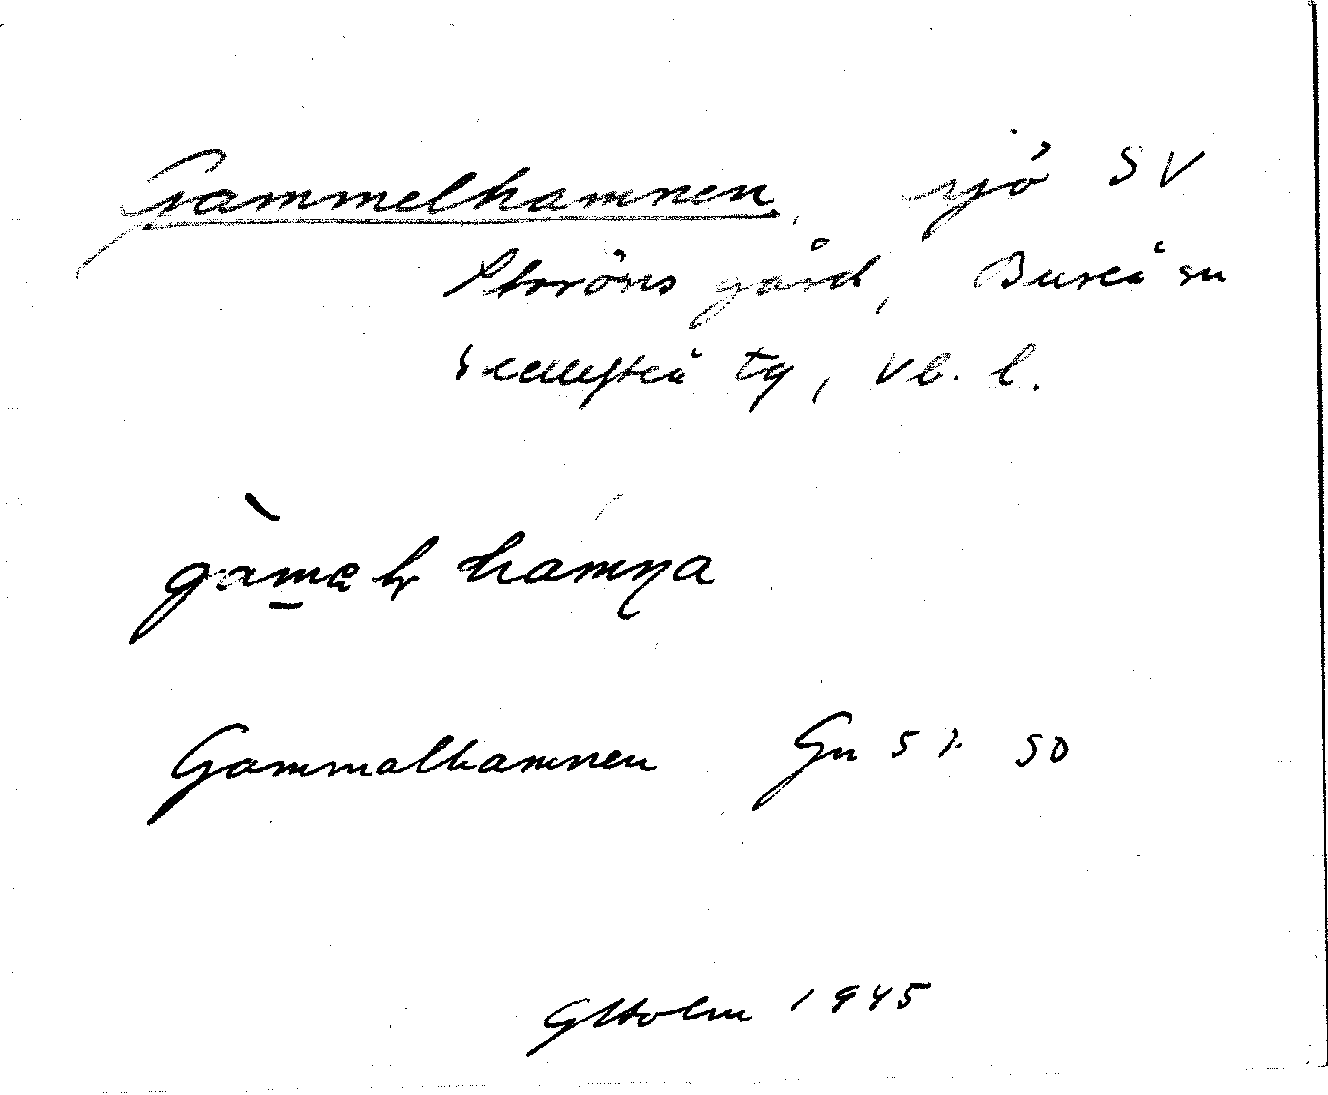 Gammelhamnen, sjö SV
Storöns gård, Bureå sn
Skellefteå tg, Vb. l.
hamna
Gammalhamnen Gn 51 SO
GHolm 1945